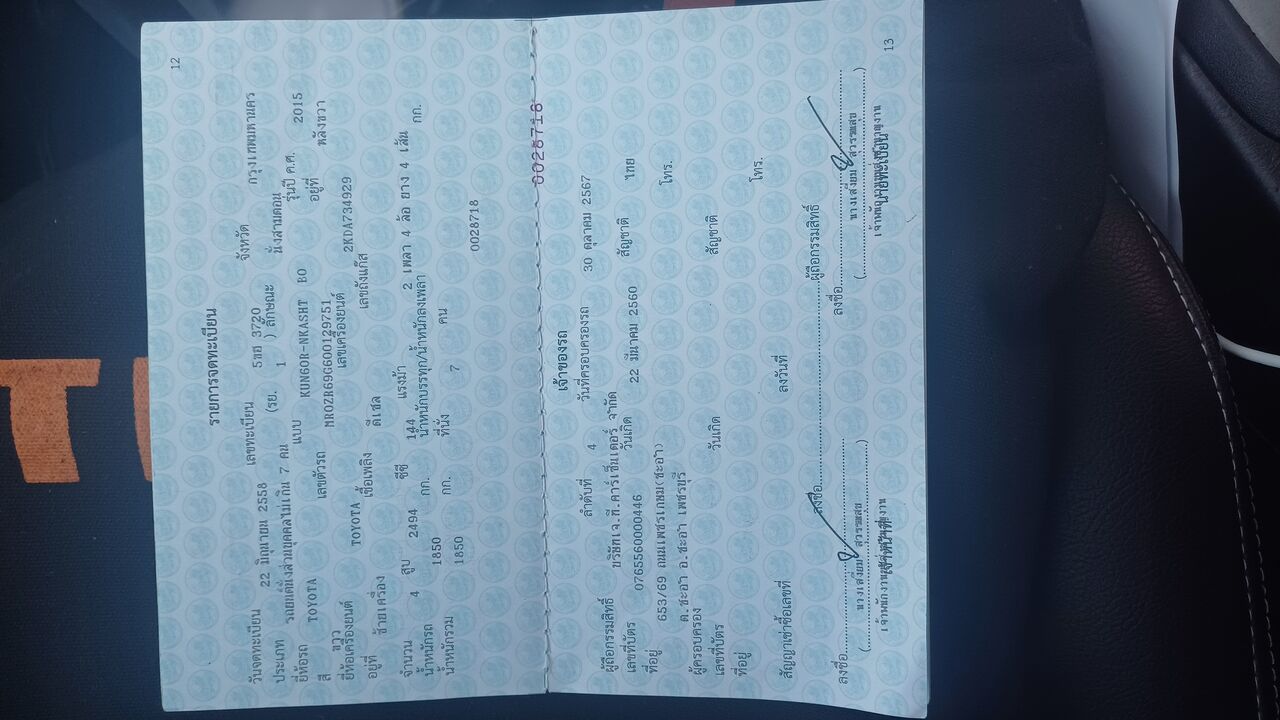 12
รายการจดทะเบียน
วันจดทะเบียน 22 มิถุนายน 2558 เลขทะเบียน 5ขฮ 3720 จังหวัด กรุงเทพมหานคร
ประเภท รถยนต์นั่งส่วนบุคคลไม่เกิน 7 คน (รย. 1 ) ลักษณะ นั่งสามตอน
ยี่ห้อรถ TOYOTA แบบ KUN60R-NKASHT BO รุ่นปี ค.ศ. 2015
สี ขาว เลขตัวรถ MR0ZR69G600129751 อยู่ที่ หลังขวา
ยี่ห้อเครื่องยนต์ TOYOTA เลขเครื่องยนต์ 2KDA734929
อยู่ที่ ซ้ายเครื่อง เชื้อเพลิง ดีเซล เลขถังแก๊ส
จำนวน 4 สูบ 2494 ซีซี 144 แรงม้า 2 เพลา 4 ล้อ ยาง 4 เส้น
น้ำหนักรถ 1850 กก. น้ำหนักบรรทุก/น้ำหนักลงเพลา กก.
น้ำหนักรวม 1850 กก. ที่นั่ง 7 คน
0028718
0028718
เจ้าของรถ
ลำดับที่ 4 วันที่ครอบครองรถ 30 ตุลาคม 2567
ผู้ถือกรรมสิทธิ์ บริษัทเจ.ที.คาร์เซ็นเตอร์ จำกัด
เลขที่บัตร 0765560000446 วันเกิด 22 มีนาคม 2560 สัญชาติ ไทย
ที่อยู่ 653/69 ถนนเพชรเกษม(ชะอำ) โทร.
ต.ชะอำ อ.ชะอำ เพชรบุรี
ผู้ครอบครอง
เลขที่บัตร วันเกิด สัญชาติ
ที่อยู่ โทร.
สัญญาเช่าซื้อเลขที่ ลงวันที่
ลงชื่อ ผู้ถือกรรมสิทธิ์
ลงชื่อ ลงชื่อ
( นางเสงี่ยม ) ( นางเสงี่ยม )
เจ้าหน้าที่ นายทะเบียน
13